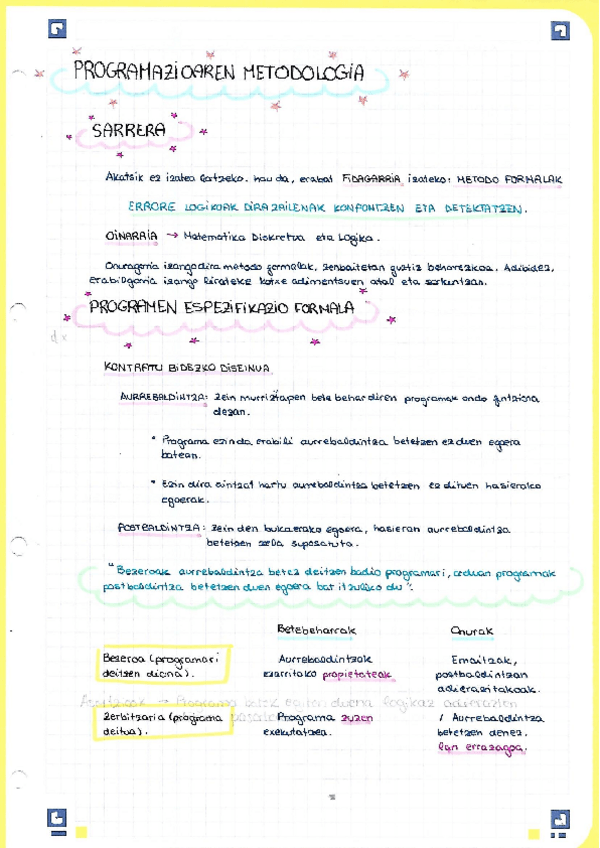 PROGRAMAZIOAREN METODOLOGIA
SARRERA
Akatsik ez izatea lortzeko. hau da, erabat FIDAGARRIA izateko: METODO FORMALAK
ERRORE LOGIKOAK DIRA ZAILENAK KONPONTZEN ETA DETEKTATZEN.
OINARRIA → Matematika Diskretua eta Logika.
Onuragarria izango dira metodo formalak, zenbaitetan guztiz beharrezkoa. Adibidez,
erabilgarria izango lirateke kotxe adimentsuen atal eta
PROGRAMEN ESPEZIFIKAZIO FORMALA
KONTRATU BIDEZKO DISEINUA
AURREBALDINTZA: Zein murriztapen bete behar diren programak ondo funtziona
dezan.
* Programa ezin da erabili aurrebaldintza betetzen ez duen egoera
batean.
* Ezin dira aintzat hartu aurrebaldintza betetzen ez dituen hasierako
egoerak.
POSTBALDINTZA: Zein den bukaerako egoera, hasieran aurrebaldintza
betetzen zela suposatuta.
"Bezeroak aurrebaldintza betez deitzen badio programari, orduan programak
postbaldintza betetzen duen egoera bat itzuliko du".
Betebeharrak Onurak
Bezeroa (programari
deitzen diona).
Aurrebaldintzak
ezarritako propietateak
Emaitzak,
postbaldintzan
adierazitakoak.
Asertzioak → Programa batek egiten duena logikaz adierazten
Zerbitzaria (programa
deitua).
Programa zuzen
exekutatzea.
Aurrebaldintza
betetzen denez.
lan errazagoa.